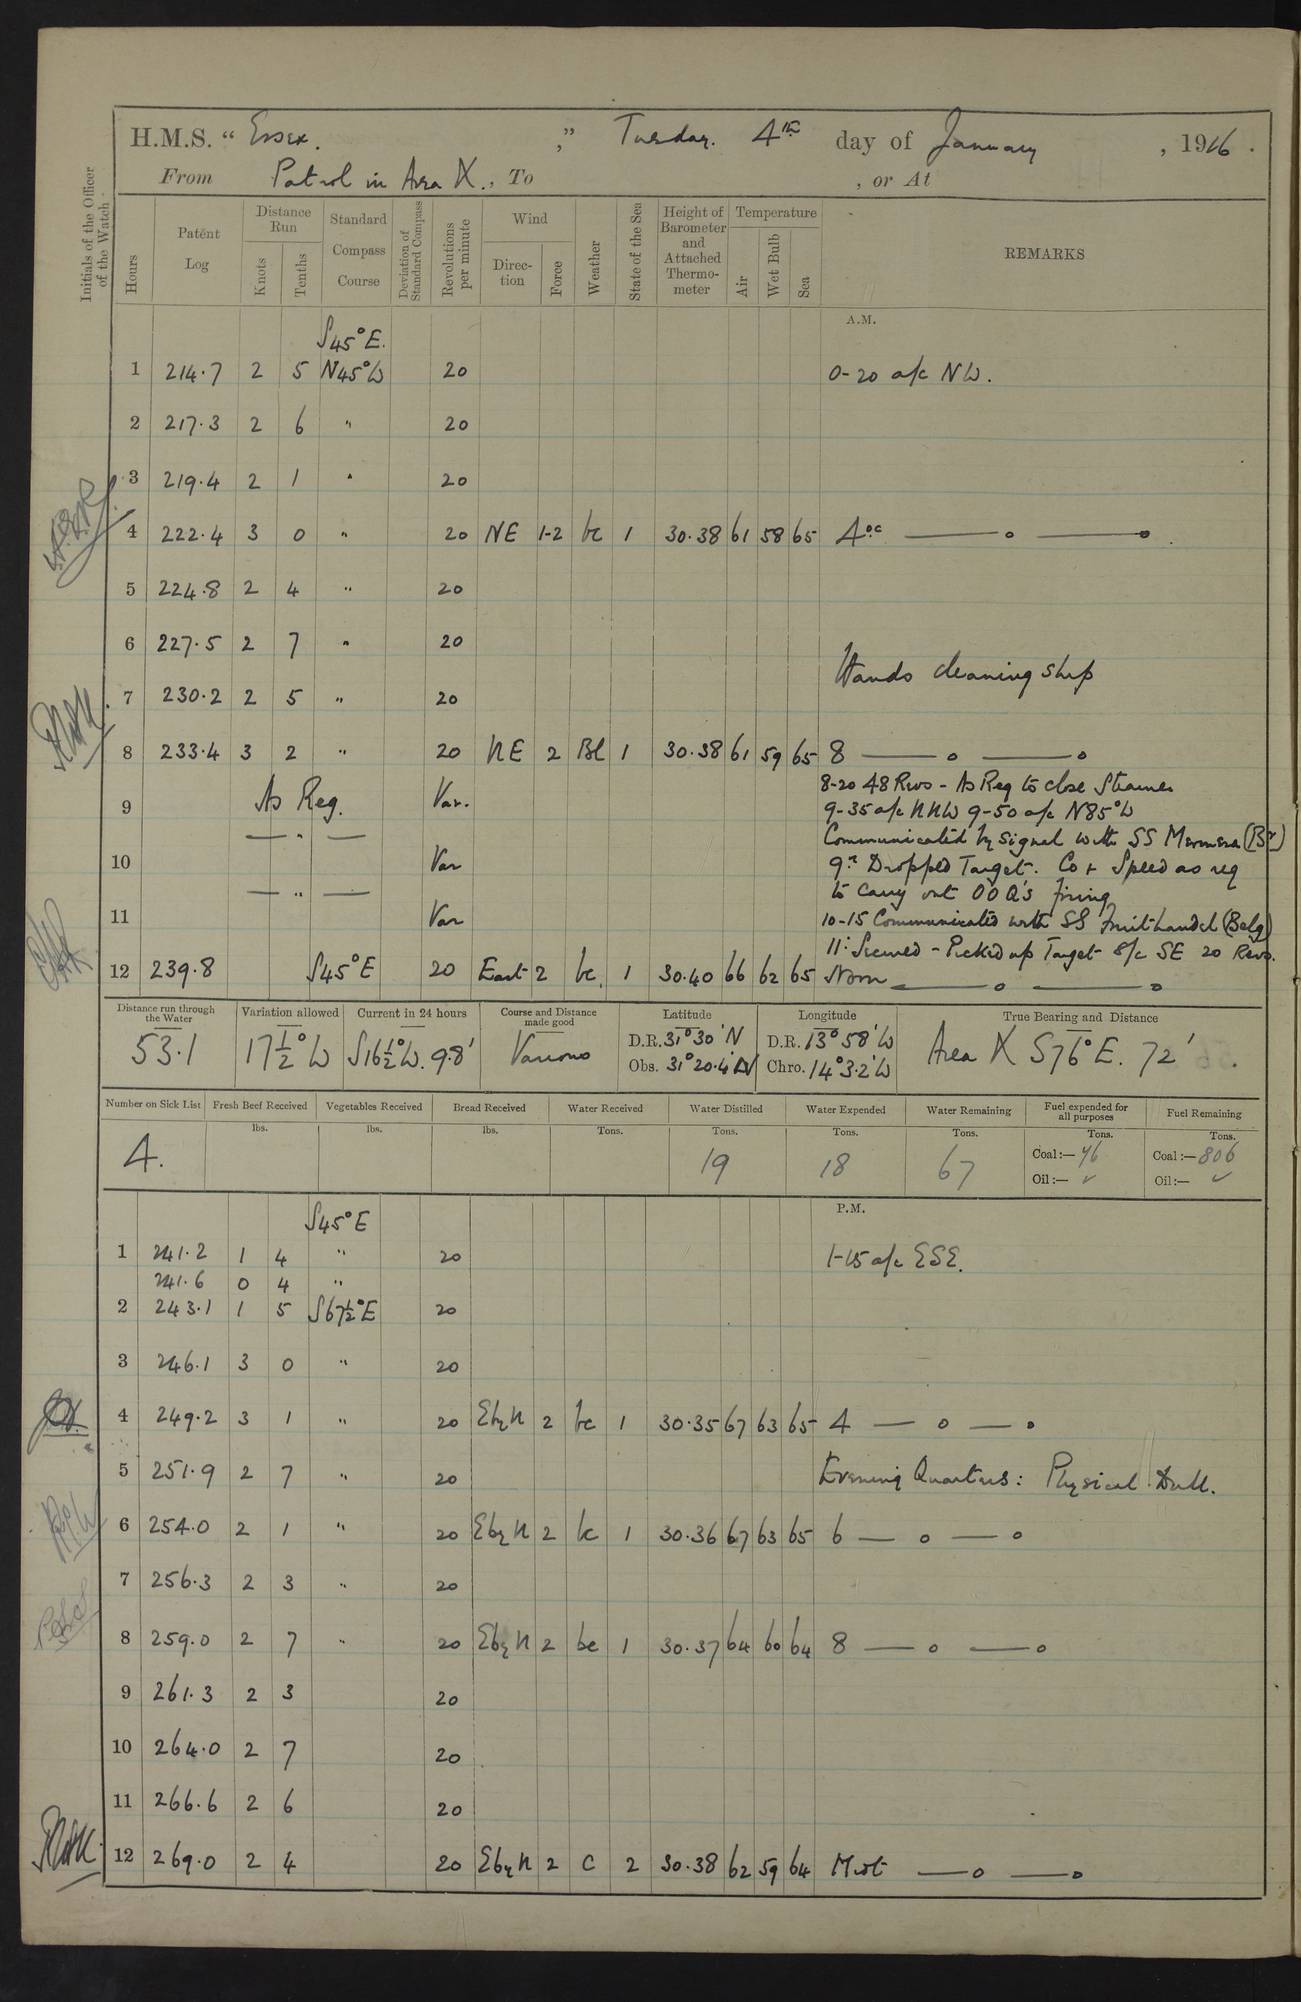 H.M.S. “ Essex. ,” Tuesday. 4th day of January , 1916 .
From Patrol in Area X., To , or At
Initials of the Officer of the Watch
Hours
Patent Log
Distance Run
Knots
Tenths
Standard Compass Course
Deviation of Standard Compass
Revolutions per minute
Wind
Direction
Force
Weather
State of the Sea
Height of Barometer and Attached Thermometer
Temperature
Air
Wet Bulb
Sea
REMARKS
A.M.
S45°E.
1 214.7 2 5 N45°W 20 0-20 a/c NW.
2 217.3 2 6 " 20
3 219.4 2 1 " 20
4 222.4 3 0 " 20 NE 1-2 bc 1 30.38 61 58 65 4oc
5 224.8 2 4 " 20
6 227.5 2 7 " 20
Hands cleaning ship
7 230.2 2 5 " 20
8 233.4 3 2 " 20 NE 2 Bc 1 30.38 61 59 65 8
8-20 48 Revs - As Req to close Steamer
9 As Req. Var. 9-35 a/c NNW 9-50 a/c N85°W
— " — Communicated by signal with SS (Br)
10 Var 9 Dropped Target. Co & Speed as req
— " — to carry out OOQ's firing
11 Var 10-15 Communicated with SS Fruithandel (Belg)
11: Secured - Picked up Target S/c SE 20 Revs.
12 239.8 S45°E 20 East 2 bc. 1 30.40 66 62 65 Noon
Distance run through the Water
Variation allowed
Current in 24 hours
Course and Distance made good
Latitude
Longitude
True Bearing and Distance
53.1 17½°W S16½°W. 9.8' Various D.R. 31°30'N D.R. 13°58'W Area X S76°E. 72' .
Obs. 31°20.4'N Chro. 14°3.2'W
Number on Sick List
Fresh Beef Received
Vegetables Received
Bread Received
Water Received
Water Distilled
Water Expended
Water Remaining
Fuel expended for all purposes
Fuel Remaining
lbs. lbs. lbs. Tons. Tons. Tons. Tons. Tons. Tons.
4. 19 18 67 Coal:— 46 Coal:— 806
Oil:— ✓ Oil:— ✓
P.M.
S45°E
1 241.2 1 4 " 20 1-15 a/c ESE.
241.6 0 4 "
2 243.1 1 5 S67½°E 20
3 246.1 3 0 " 20
4 249.2 3 1 " 20 EbyN 2 bc 1 30.35 67 63 65 4
5 251.9 2 7 " 20 Evening Quarters: Physical Drill.
6 254.0 2 1 " 20 EbyN 2 bc 1 30.36 67 63 65 6
7 256.3 2 3 " 20
8 259.0 2 7 " 20 EbyN 2 bc 1 30.37 64 60 64 8
9 261.3 2 3 20
10 264.0 2 7 20
11 266.6 2 6 20
12 269.0 2 4 20 EbyN 2 c 2 30.38 62 59 64 Midt